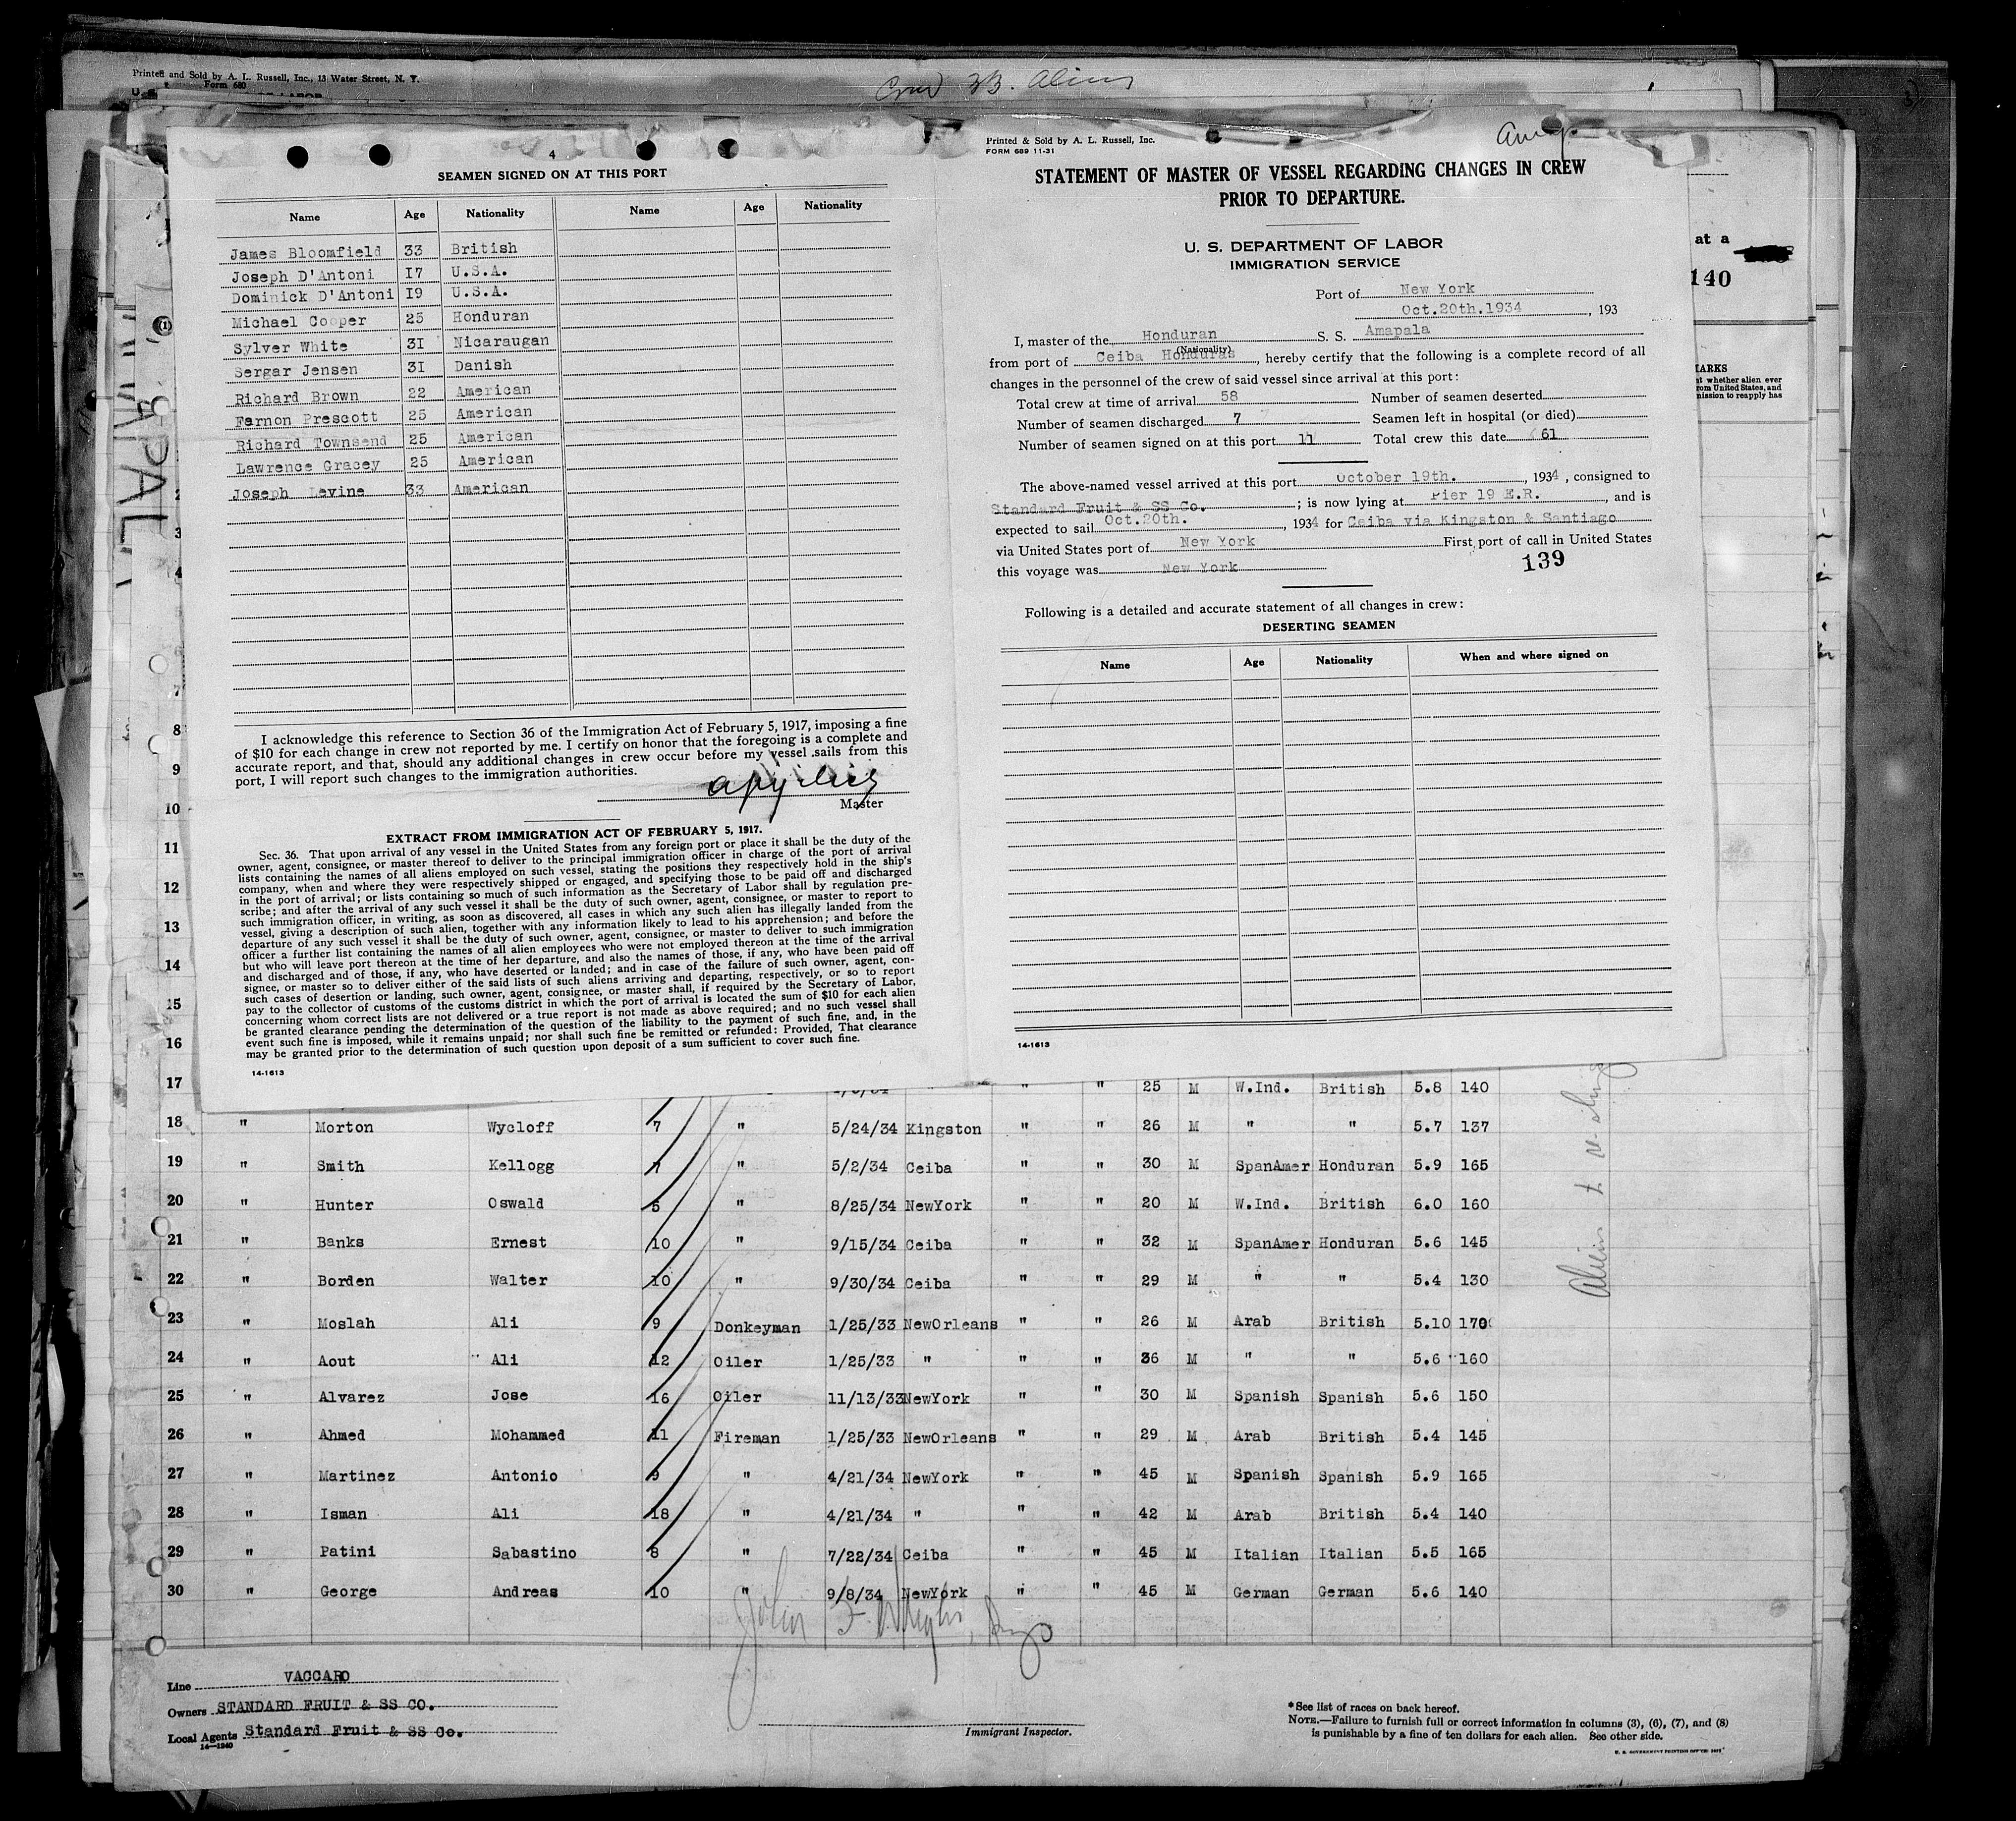 Printed and Sold by A. L. Russell, Inc., 13 Water Street, N. Y.
Form 680
Crew 33. Aliens
4
SEAMEN SIGNED ON AT THIS PORT
Name Age Nationality Name Age Nationality
James Bloomfield 33 British
Joseph D'Antoni I7 U.S.A.
Dominick D'Antoni I9 U.S.A.
Michael Cooper 25 Honduran
Sylver White 3I Nicaraugan
Sergar Jensen 3I Danish
Richard Brown 22 American
Farnon Prescott 25 American
Richard Townsend 25 American
Lawrence Gracey 25 American
Joseph Levine 33 American
I acknowledge this reference to Section 36 of the Immigration Act of February 5, 1917, imposing a fine
of $10 for each change in crew not reported by me. I certify on honor that the foregoing is a complete and
accurate report, and that, should any additional changes in crew occur before my vessel sails from this
port, I will report such changes to the immigration authorities.
Master
EXTRACT FROM IMMIGRATION ACT OF FEBRUARY 5, 1917.
Sec. 36. That upon arrival of any vessel in the United States from any foreign port or place it shall be the duty of the
owner, agent, consignee, or master thereof to deliver to the principal immigration officer in charge of the port of arrival
lists containing the names of all aliens employed on such vessel, stating the positions they respectively hold in the ship's
company, when and where they were respectively shipped or engaged, and specifying those to be paid off and discharged
in the port of arrival; or lists containing so much of such information as the Secretary of Labor shall by regulation pre-
scribe; and after the arrival of any such vessel it shall be the duty of such owner, agent, consignee, or master to report to
such immigration officer, in writing, as soon as discovered, all cases in which any such alien has illegally landed from the
vessel, giving a description of such alien, together with any information likely to lead to his apprehension; and before the
departure of any such vessel it shall be the duty of such owner, agent, consignee, or master to deliver to such immigration
officer a further list containing the names of all alien employees who were not employed thereon at the time of the arrival
but who will leave port thereon at the time of her departure, and also the names of those, if any, who have been paid off
and discharged and of those, if any, who have deserted or landed; and in case of the failure of such owner, agent, con-
signee, or master so to deliver either of the said lists of such aliens arriving and departing, respectively, or so to report
such cases of desertion or landing, such owner, agent, consignee, or master shall, if required by the Secretary of Labor,
pay to the collector of customs of the customs district in which the port of arrival is located the sum of $10 for each alien
concerning whom correct lists are not delivered or a true report is not made as above required; and no such vessel shall
be granted clearance pending the determination of the question of the liability to the payment of such fine, and, in the
event such fine is imposed, while it remains unpaid; nor shall such fine be remitted or refunded: Provided, That clearance
may be granted prior to the determination of such question upon deposit of a sum sufficient to cover such fine.
14-1613
Printed & Sold by A. L. Russell, Inc.
FORM 689 11-31
STATEMENT OF MASTER OF VESSEL REGARDING CHANGES IN CREW
PRIOR TO DEPARTURE.
U. S. DEPARTMENT OF LABOR
IMMIGRATION SERVICE
Port of New York
Oct.20th.1934, 193
I, master of the Honduran S. S. Amapala
(Nationality)
from port of Ceiba Honduras, hereby certify that the following is a complete record of all
changes in the personnel of the crew of said vessel since arrival at this port:
Total crew at time of arrival 58 Number of seamen deserted
Number of seamen discharged 7 Seamen left in hospital (or died)
Number of seamen signed on at this port 11 Total crew this date 61
The above-named vessel arrived at this port October 19th., 1934, consigned to
Standard Fruit & SS Co.; is now lying at Pier 19 E.R., and is
expected to sail Oct.20th., 1934 for Ceiba via Kingston & Santiago
via United States port of New York First port of call in United States
this voyage was New York
139
Following is a detailed and accurate statement of all changes in crew:
DESERTING SEAMEN
Name Age Nationality When and where signed on
14-1613
at a
140
MARKS
whether alien ever
from United States, and
mission to reapply has
2
3
4
7
8
9
10
11
12
13
14
15
16
17 " " 25 M W.Ind. British 5.8 140
18 " Morton Wycloff 7 " 5/24/34 Kingston " " 26 M " " 5.7 137
19 " Smith Kellogg 7 " 5/2/34 Ceiba " " 30 M SpanAmer Honduran 5.9 165
20 " Hunter Oswald 5 " 8/25/34 NewYork " " 20 M W.Ind. British 6.0 160
21 " Banks Ernest 10 " 9/15/34 Ceiba " " 32 M SpanAmer Honduran 5.6 145
22 " Borden Walter 10 " 9/30/34 Ceiba " " 29 M " " 5.4 130
23 " Moslah Ali 9 Donkeyman 1/25/33 NewOrleans " " 26 M Arab British 5.10 170
24 " Aout Ali 12 Oiler 1/25/33 " " " 36 M " " 5.6 160
25 " Alvarez Jose 16 Oiler 11/13/33 NewYork " " 30 M Spanish Spanish 5.6 150
26 " Ahmed Mohammed 11 Fireman 1/25/33 NewOrleans " " 29 M Arab British 5.4 145
27 " Martinez Antonio 9 " 4/21/34 NewYork " " 45 M Spanish Spanish 5.9 165
28 " Isman Ali 18 " 4/21/34 " " " 42 M Arab British 5.4 140
29 " Patini Sabastino 8 " 7/22/34 Ceiba " " 45 M Italian Italian 5.5 165
30 " George Andreas 10 " 9/8/34 NewYork " " 45 M German German 5.6 140
Line VACCARO
Owners STANDARD FRUIT & SS CO.
Local Agents Standard Fruit & SS Co.
14-1240
Immigrant Inspector.
*See list of races on back hereof.
NOTE.—Failure to furnish full or correct information in columns (3), (6), (7), and (8)
is punishable by a fine of ten dollars for each alien. See other side.